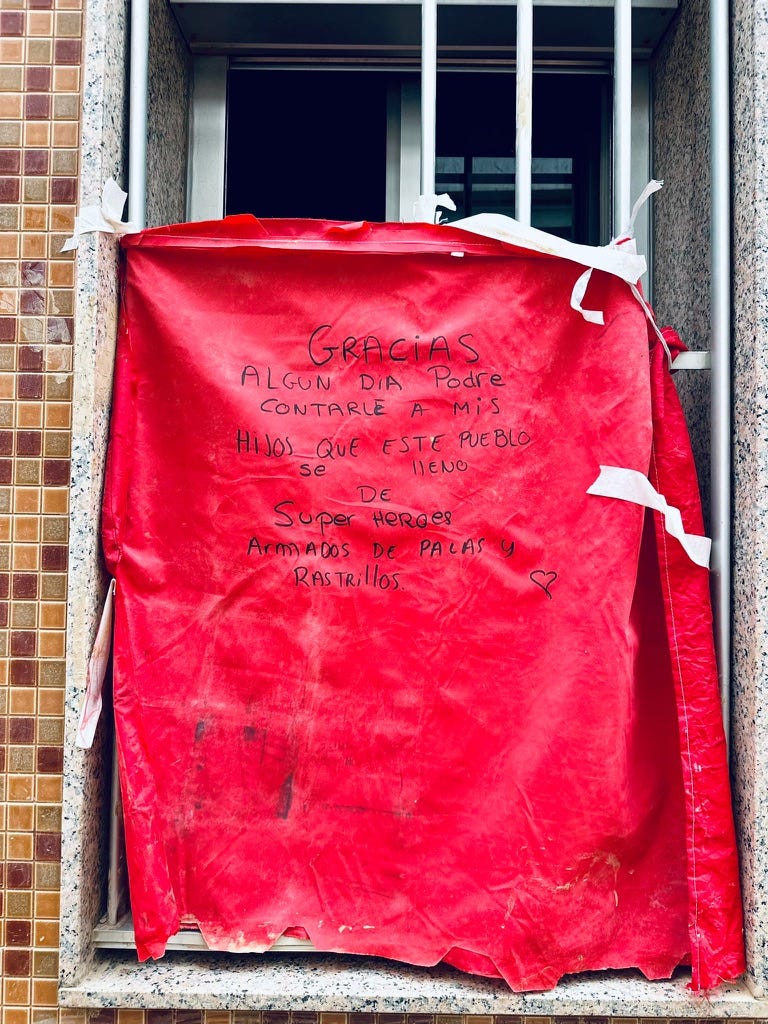 GRACiAS
ALGUN DIA Podre
CONTARLE A MiS
HIJOS QUE ESTE PUEBLO
se lleno
DE
Super HEROES
ArmADOS DE PALAS y
RASTRillOS.